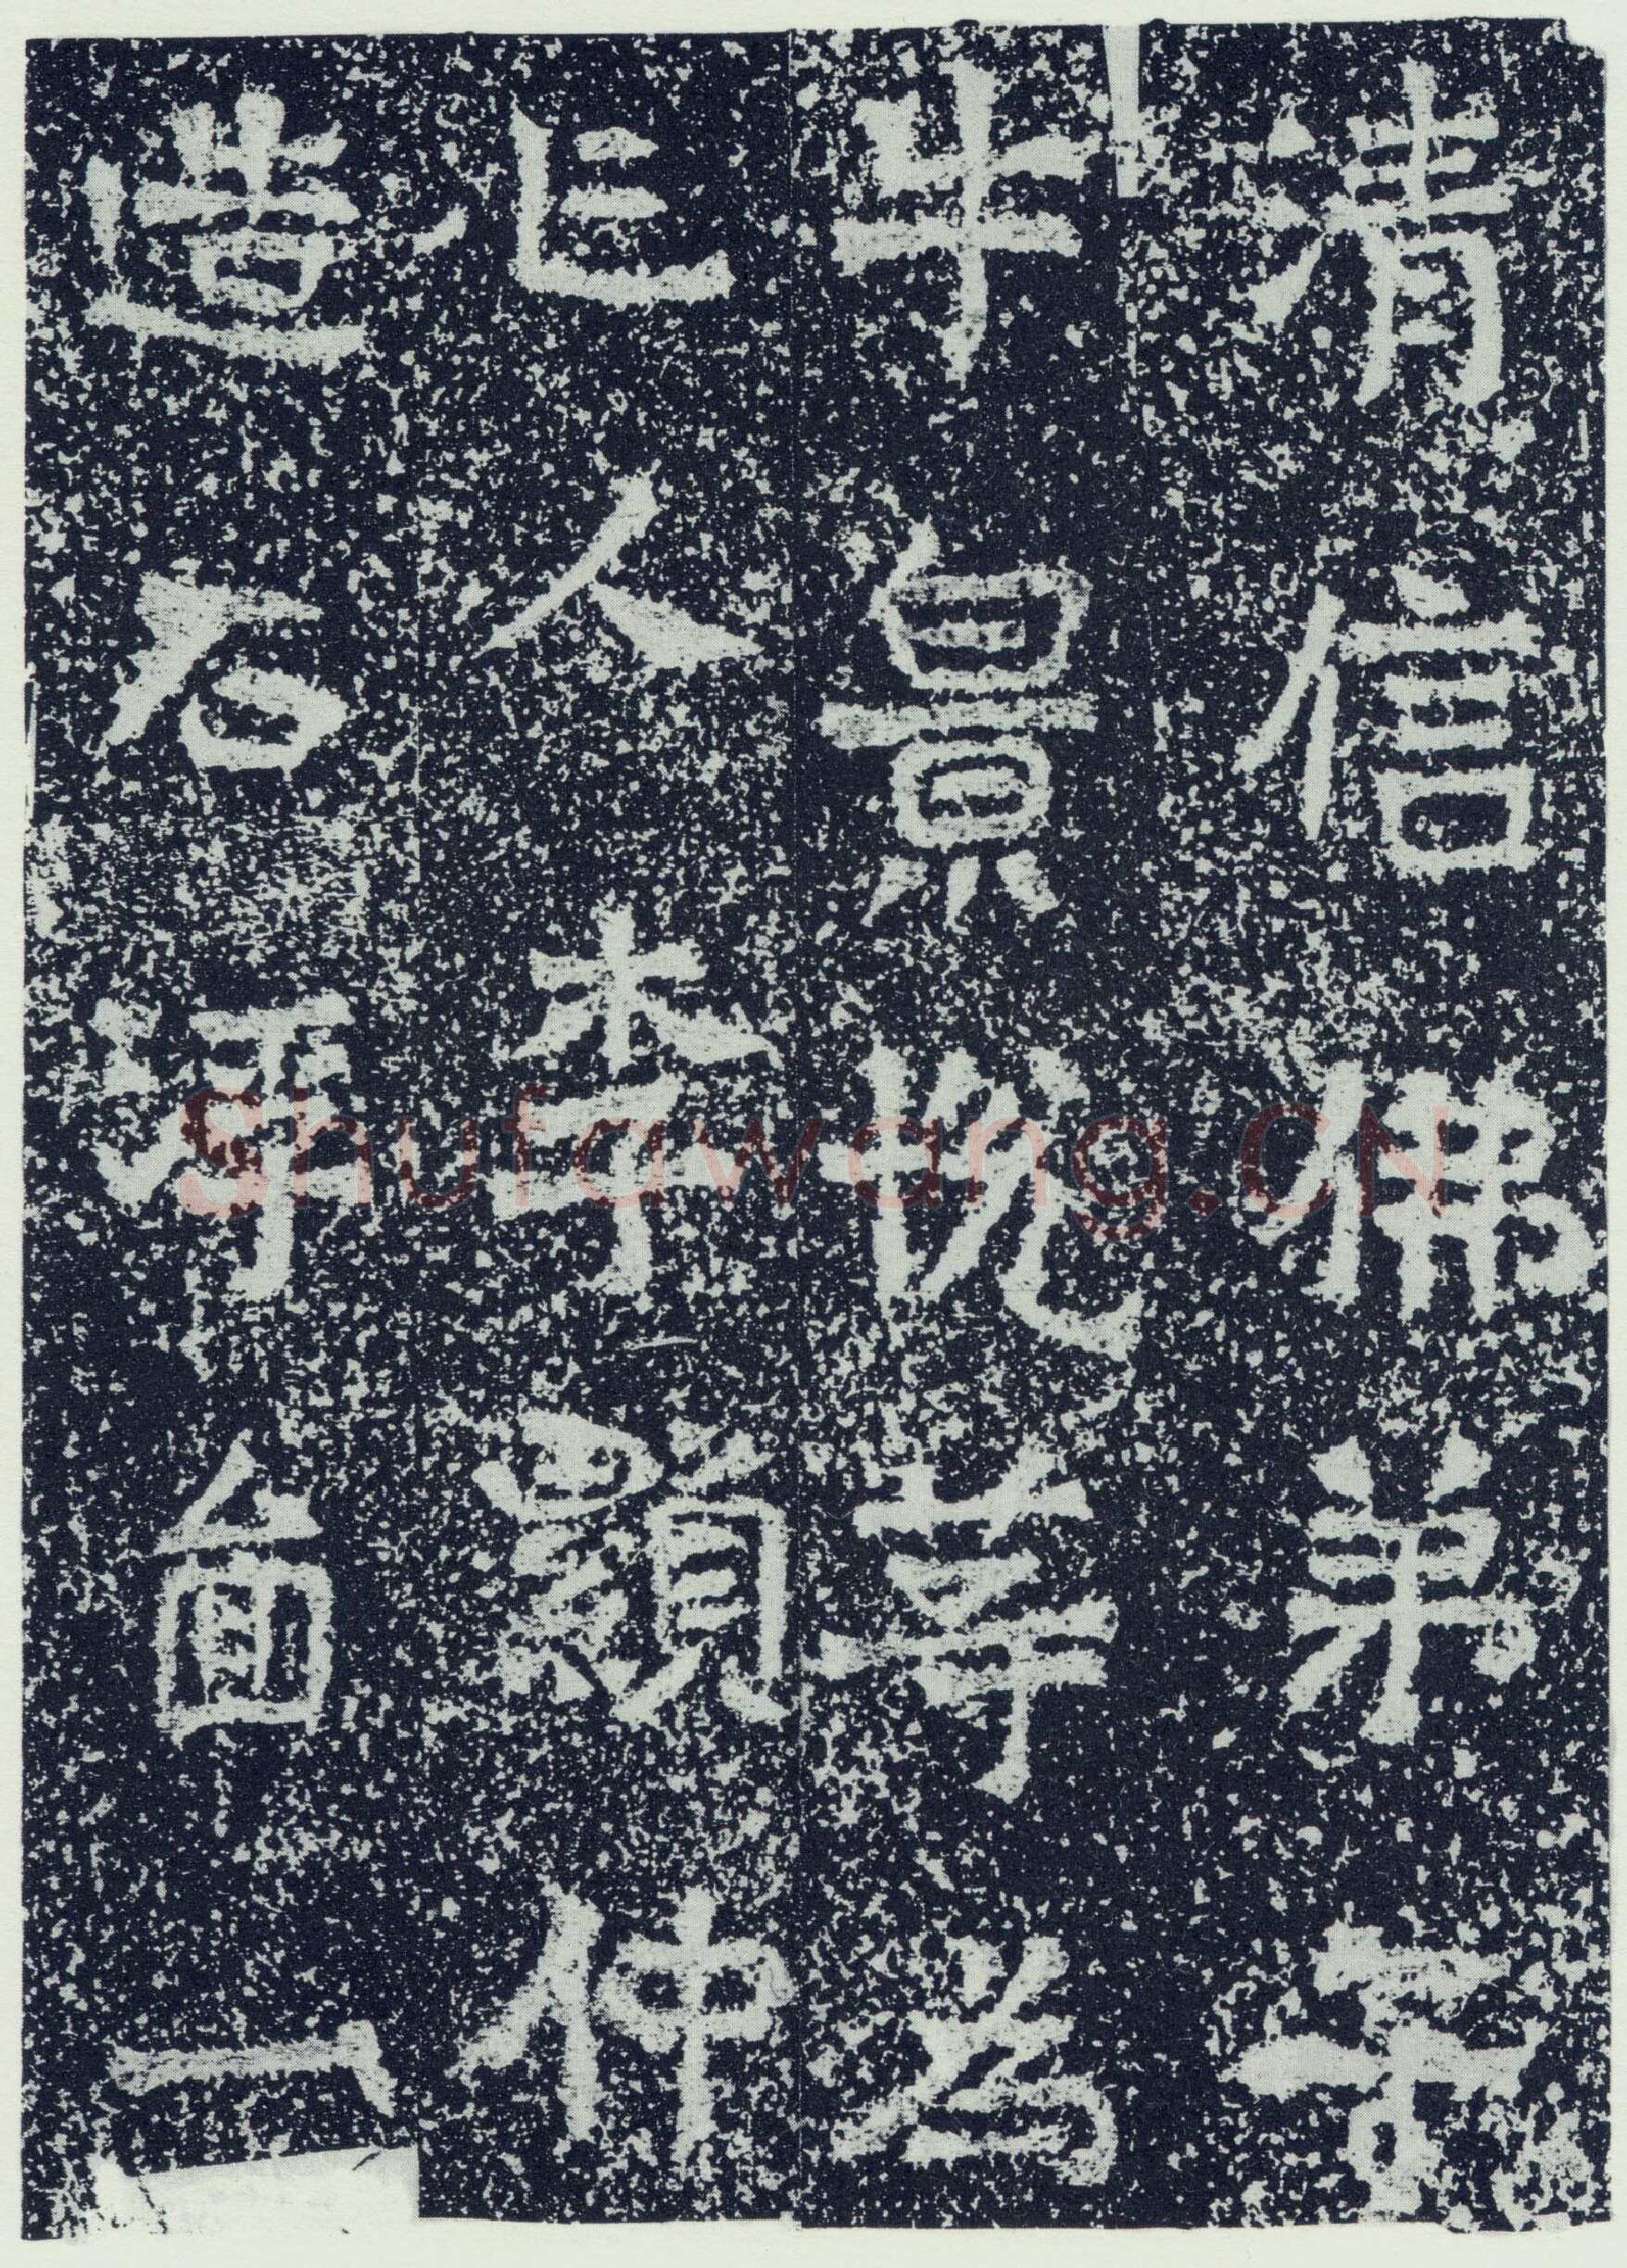 清信佛弟
牛景悅等為
亡人李顯仲
造石浮啚一
Shufawang.CN